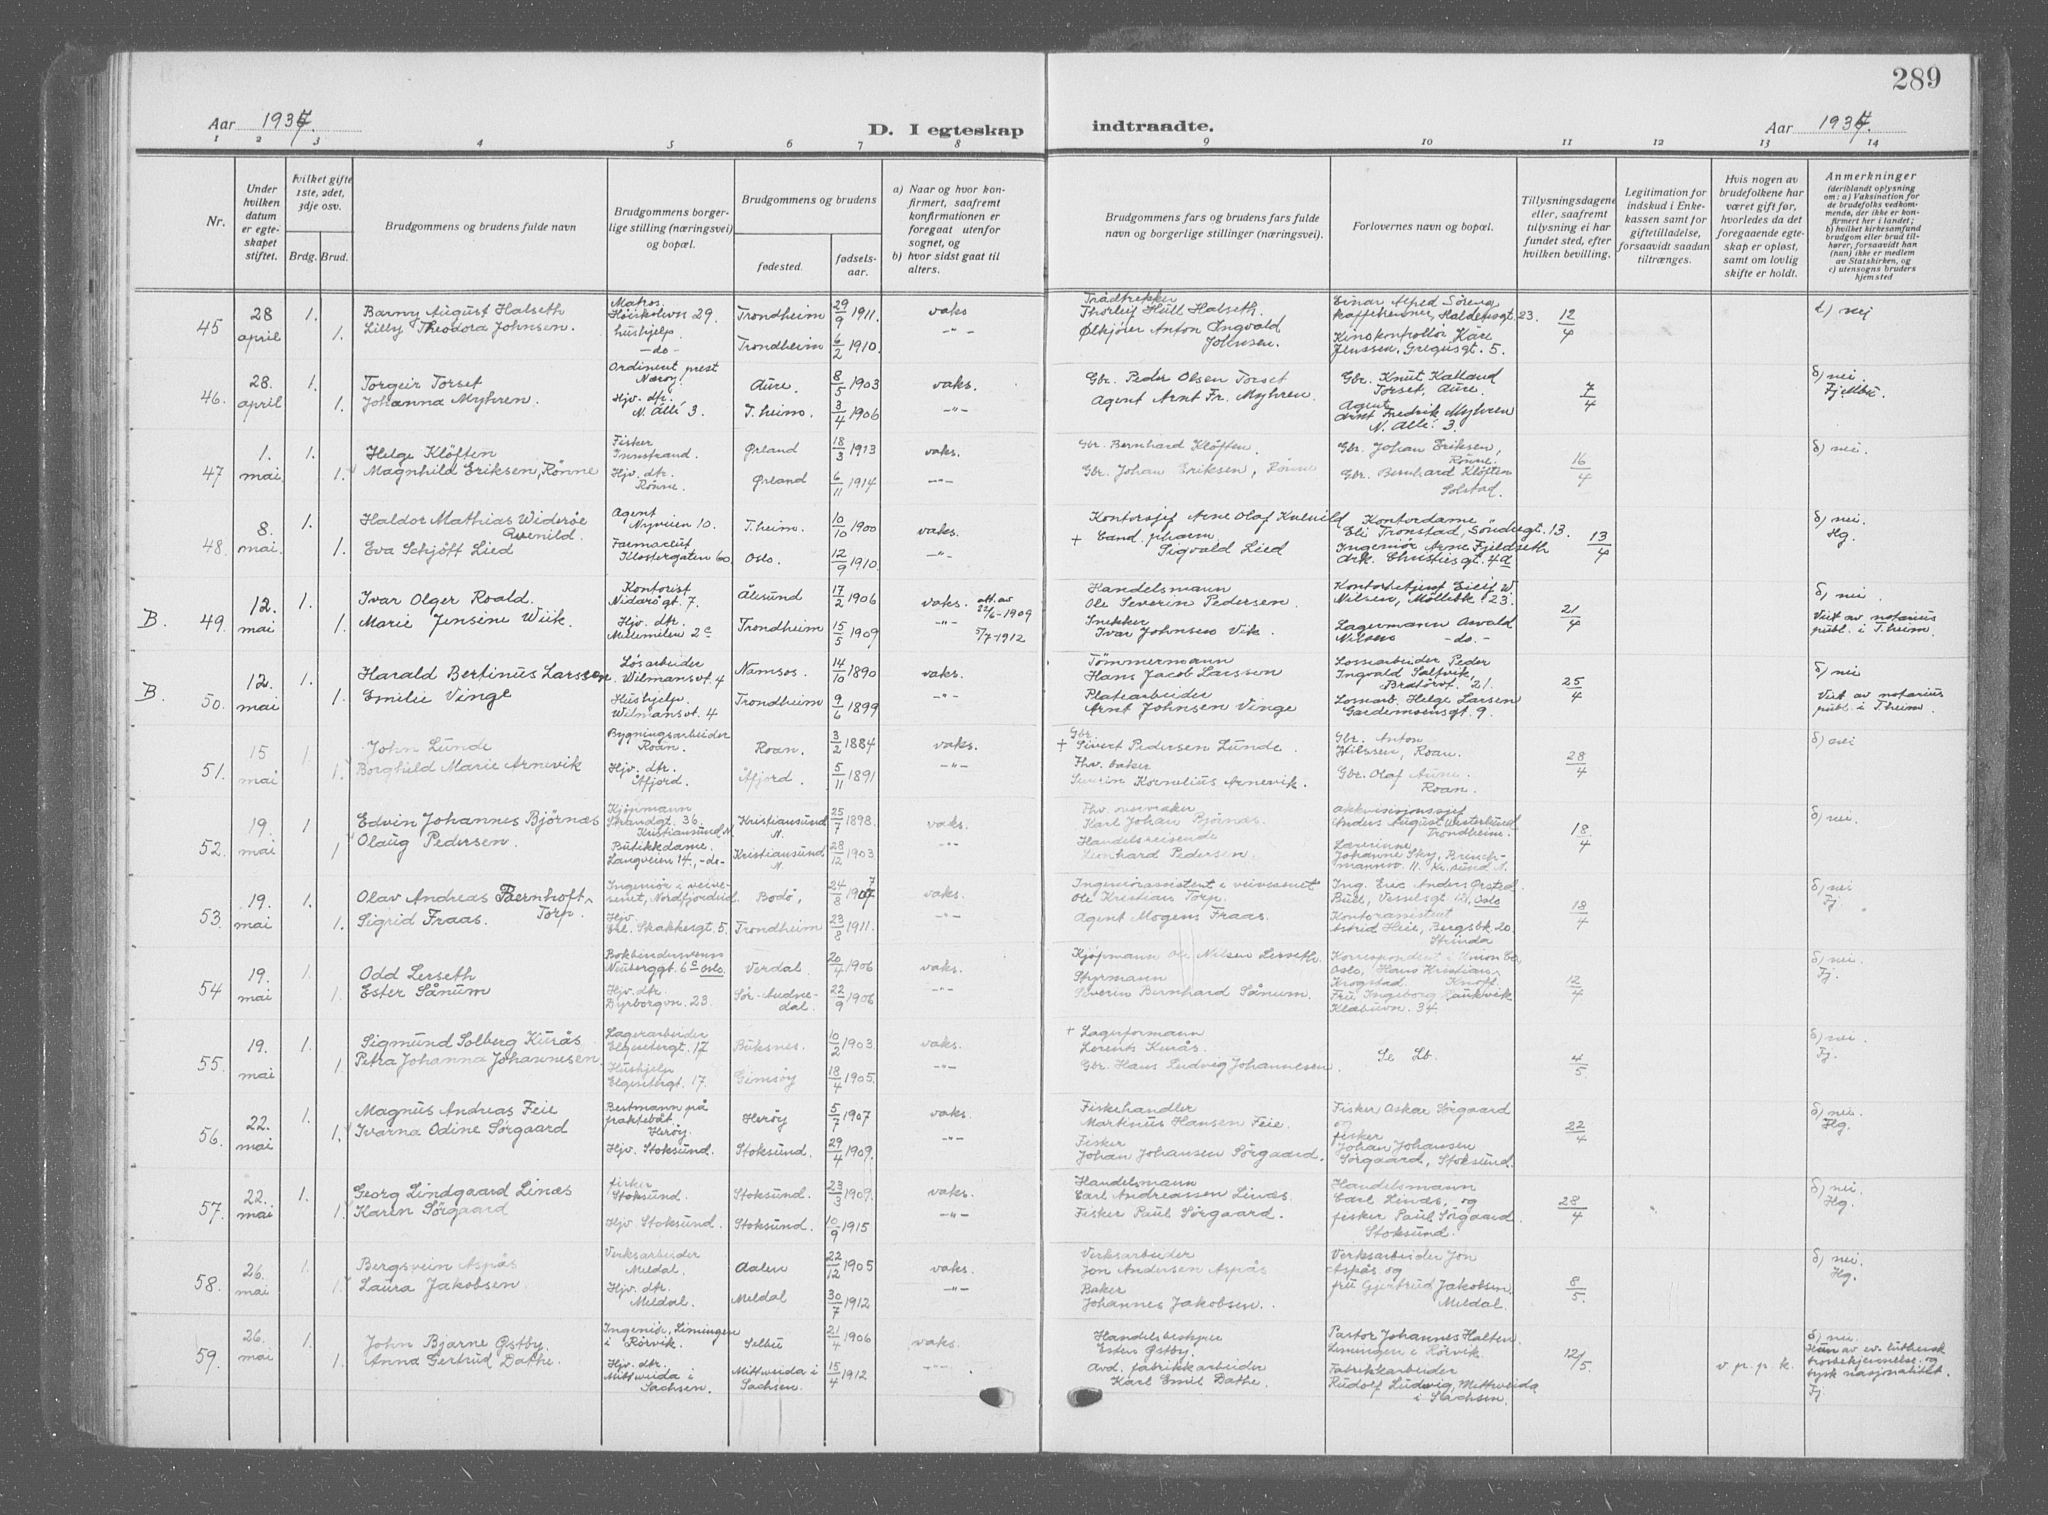 289
Aar 1934.
D. I egteskap indtraadte.
Aar 1934.
1 2 3 4 5 6 7 8 9 10 11 12 13 14
Nr.
Under hvilken datum er egteskapet stiftet.
hvilket gifte 1ste, 2det, 3dje osv.
Brdg. Brud.
Brudgommens og brudens fulde navn
Brudgommens borgerlige stilling (næringsvei) og bopæl.
Brudgommens og brudens
fødested.
fødselsaar.
a) Naar og hvor konfirmert, saafremt konfirmationen er foregaat utenfor sognet, og
b) hvor sidst gaat til alters.
Brudgommens fars og brudens fars fulde navn og borgerlige stillinger (næringsvei).
Forlovernes navn og bopæl.
Tillysningsdagene eller, saafremt tillysning ei har fundet sted, efter hvilken bevilling.
Legitimation for indskud i Enkekassen samt for giftetilladelse, forsaavidt saadan tiltrænges.
Hvis nogen av brudefolkene har været gift før, hvorledes da det foregaaende egteskap er opløst, samt om lovlig skifte er holdt.
Anmerkninger
(deriblandt oplysning om: a) Vaksination for de brudefolks vedkommende, der ikke er konfirmert her i landet;
b) hvilket kirkesamfund brudgom eller brud tilhører, forsaavidt han (hun) ikke er medlem av Statskirken, og
c) utensogns bruders hjemsted
45 28 april 1. Barny August Halseth Matros. Trondheim 29/9 1911. vaks Trådtrekker Thorleif Hull Halseth Einar Alfred Söreng 12/4 b) nei
1. Lilly Theodora Johnsen. hushjelp -do- Trondheim 6/2 1910. -"- Ølkjører Anton Ingvald Johnsen. Kinokontrollør Kåre Jenssen, Gregusgt. 5.
46. 28. april 1. Torgeir Torset Ordinert prest Nærøy. Aure. 8/5 1903 vaks. Gbr. Peder Olsen Torset Gbr. Knut Kalland Torset, Aure. 7/4 b) nei. Fjellbu.
1. Johanna Myhren. Hjv. dtr. N. Allé 3. T.heim. 3/4 1906 -"- Agent Arnt Fr. Myhren. Agent Arnt Fredrik Myhren N. Allé 3.
47 1. mai 1. Helge Klöften Fisker Innstrand. Ørland 18/3 1913 vaks. Gbr. Bernhard Klöften. Gbr. Johan Eriksen, Rönne. 16/4 b) nei.
1. Magnhild Eriksen, Rönne Hjv. dtr. Rönne. Ørland 6/11 1914 -"- Gbr. Johan Eriksen, Rönne Gbr. Bernhard Klöften Solstad.
48. 8. mai. 1. Haldor Mathias Wideröe Agent Nyveien 10. T.heim. 10/10 1900 vaks. Kontorsjef Arne Olaf Kontordame Eli Tronstad, Söndregt. 13. 13/4 b) nei. Hg.
1. Eva Schjöff Lied Farmaceut Klostergaten 60. Oslo. 12/9 1910. -"- + Cand. pharm Sigvald Lied Ingeniør Arne Fjeldseth Ark. Christiesgt. 4a
B. 49. 12. mai 1. Ivar Olger Roald. Kontorist Nidarøgt. 7. Ålesund 17/2 1906 vaks. att. av 22/6-1909 Handelsmann Ole Severin Pedersen. Kontorbetjent Eilif W. Nilsen, Möllebk. 23. 21/4 b) nei. Viet av notarius publ. i T.heim.
1. Marie Jensine Wiik. Hjv. dtr. Mellemilen 2c Trondheim 15/5 1909 -"- 5/7-1912 Snekker Ivar Johnsen Vik. Lagermann Osvald Nilsen -do.-
B 50. 12. mai 1. Harald Bertinus Larssen Løsarbeider Wilmansvt. 4 Namsos. 14/10 1890 vaks. Tømmermann Hans Jacob Larssen Lossearbeider Peder Ingvald Saltvik, Bratörvt. 21. 25/4 b) nei Viet av notarius publ. i T.heim.
1. Emilie Vinge Hushjelp Wilmansvt. 4 Trondheim 9/6 1899 -"- Platearbeider Arnt Johnsen Vinge Lossearb. Helge Larsen Gardemoensgt. 9.
51. 15 mai 1 John Lunde Bygningsarbeider Roan. Roan. 3/2 1884 vaks. + Gbr. Sivert Pedersen Lunde. Gbr. Anton Nilssen, Roan. 28/4 b) nei
1. Borghild Marie Arnevik Hjv. dtr. Åfjord. Åfjord. 5/11 1891 -"- Fhv. baker Severin Kornelius Arnevik. Gbr. Olaf Aune. Roan.
52. 19. mai 1 Edvin Johannes Bjørnæs Kjøpmann Strandgt. 36 Kristiansund N. Kristiansund N. 25/7 1898. vaks. Karl Johan Bjørnæs. Anders August Westerlund Trondheim. 18/4 b) nei.
1 Olaug Pedersen. Butikkdame. Langveien 14., -do- Kristiansund N. 28/12 1903. -"- Handelsreisende Leonhard Pedersen. Lærerinne Johanne Sky, Kr.sund N.
53. 19. mai 1. Olav Andreas Bernhoft-Torp. Ingeniør i veivesenet, Nordfjordeid. Bodö, 24/8 1907 vaks. Ingeniørassistent i veivesenet Ole Kristian Torp. Ing. Eric Anders Ørsted Oslo 18/4 b) nei Fj.
1. Sigrid Fraas. Hjv. Erl. Skakkesgt. 5. Trondheim 23/8 1911. -"- Agent Mogens Fraas. Kontorassistent Astrid Heie, Bergsbk. 20. Strinda
54 19. mai 1. Odd Lerseth Bokbindersvenn Neuberggt. 6c Oslo Verdal. 20/4 1906 vaks. Kjøpmann Ole Nilsen Lerseth. Korrespondent i Union Co, Oslo, Hans Kristian Krogstad Knoff. 12/4 b) nei. Fj.
1. Ester Sånum Hjv. dtr. Dyrborgvn. 23. Sør-Audnedal. 22/9 1906 -"- Styrmann Severin Bernhard Sånum. Fru Ingeborg Klæbuvn. 34
55. 19. mai 1. Sigmund Solberg Kurås Lagerarbeider Elgesetergt. 17 Buksnes. 10/2 1903. vaks. + Lagerformann Lorents Kurås. Se Lb. 4/5 b) nei. Fj.
1. Petra Johanna Johannesen Hushjelp Elgesetergt. 17. Gimsøy 18/4 1905. -"- Gbr. Hans Ludvig Johannesen.
56. 22. mai 1. Magnus Andreas Feie Bestmann på fraktebåt. Herøy. Herøy 5/7 1907 vaks. Fiskehandler Martinus Hansen Feie. Fisker Oskar Sørgaard og 22/4 b) nei. Hg.
1. Ivarna Odine Sørgaard Hjv. Stoksund. Stoksund. 29/4 1909. -"- Fisker Johan Johansen Sørgaard. fisker Johan Johansen Sørgaard, Stoksund.
57. 22. mai 1. Georg Lindgaard Linæs fisker Stoksund. Stoksund. 23/3 1909. vaks. Handelsmann Carl Andreassen Linæs. Handelsmann Carl Linæs, og 28/4 b) nei. Hg.
1. Karen Sørgaard Hjv. Stoksund. Stoksund. 10/9 1915 -"- Fisker Paul Sørgaard. fisker Paul Sørgaard. Stoksund.
58. 26. mai 1. Bergsvein Aspås Verksarbeider Meldal. Aalen 22/12 1905 vaks. Verksarbeider Jon Andersen Aspås Verksarbeider Jon Aspås og 8/5. b) nei Hg.
1. Laura Jakobsen. Hjv. dtr. Meldal. Meldal 30/7 1912 -"- Baker Johannes Jakobsen. fru Gjertrud Jakobsen. Meldal.
59. 26. mai 1. John Bjarne Østby. Ingeniør, Limingen i Rörvik. Selbu 21/4 1906 vaks. Handelsbestyrer Esten Østby. Pastor Johannes Halten. Limingen i Rörvik. 12/5. v. p. p. k. b) nei. Hun av ev. luthersk trosbekjennelse og tysk nasjonalitet. Fj
1. Anna Gertrud Dathe. Hjv. dtr. Mittweida i Sachsen. Mittweida i Sachsen. 15/4 1912 -"- Avd. fabrikkarbeider Karl Emil Dathe. Fabrikkarbeider Rudolf Ludwig, Mittweida i Sachsen.